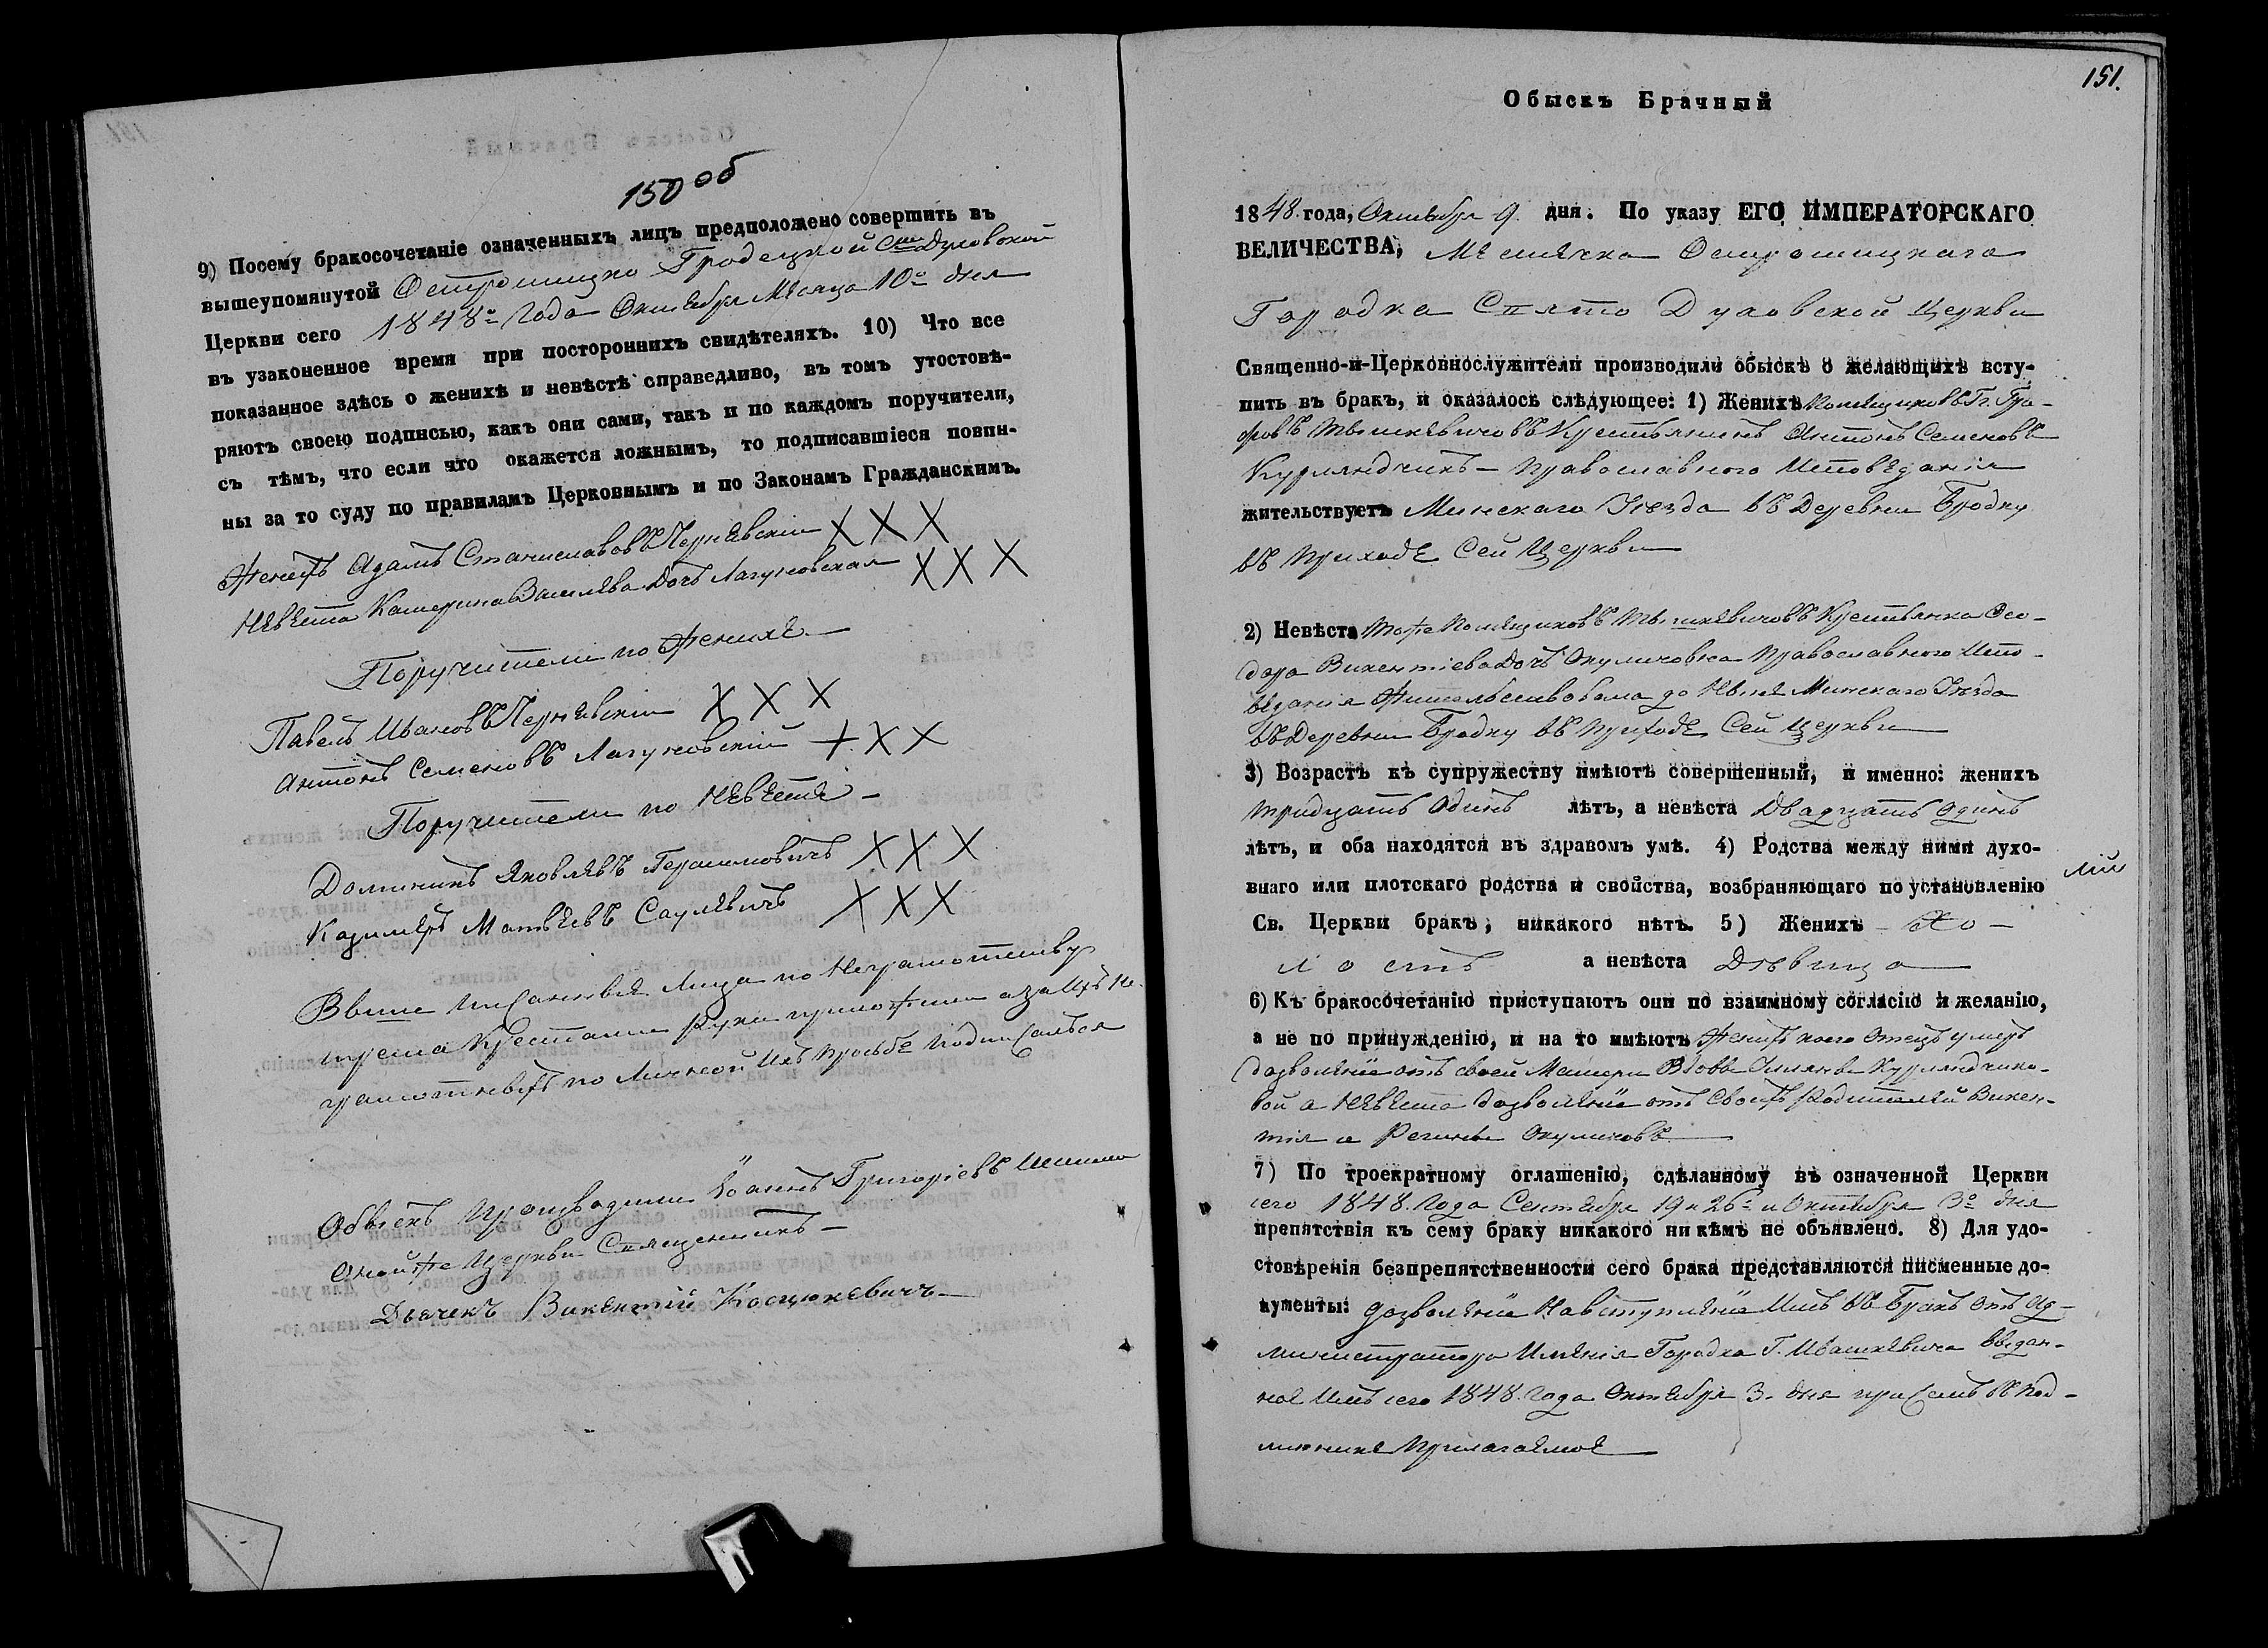 150 об
9) Посему бракосочетаніе означенныхъ лицъ предположено совершить въ
вышеупомянутой Остромицко Городецкой Сто Духовской
Церкви сего 1848го Года Октября Мѣсяца 10го дня
въ узаконенное время при постороннихъ свидѣтеляхъ. 10) Что все
показанное здѣсь о женихѣ и невѣстѣ справедливо, въ томъ утостовѣ-
ряютъ своею подписью, какъ они сами, такъ и по каждомъ поручители,
съ тѣмъ, что если что окажется ложнымъ, то подписавшіеся повин-
ны за то суду по правиламъ Церковнымъ и по Законамъ Гражданскимъ.
Женихъ Адамъ Станиславовъ Чернѣвскій X X X
Невѣста Катерина Василѣва Дочь Лагуновская X X X
Поручители по Женихѣ
Павелъ Ивановъ Чернѣвскій X X X
Антонъ Семеновъ Лагуновскій + X X
Поручители по Невѣстѣ
Доминикъ Яковлѣвъ Герасимовичъ X X X
Казимѣръ Матвѣевъ Саулѣвичъ X X X
Ввише писанныѣ Лица по Неграмотству
треша Крестами Руки приложили а за Ихъ Не-
грамотныхъ по Личной Ихъ просьбѣ подписалься
Обыскъ Производили Іоаннъ Григоріевъ
Оной же Церкви Священникъ
Дьячекъ Викентій Косцюкевичъ
151.
Обыскъ Брачный
1848. года, Октября 9. дня. По указу ЕГО ИМПЕРАТОРСКАГО
ВЕЛИЧЕСТВА, Мѣстѣчка Остромицкаго
Городка Свято Духовской Церкви
Священно-и-Церковнослужители производили обыскъ о желающихъ всту-
пить въ бракъ, и оказалось слѣдующее: 1) Женихъ Помѣщиковъ Гг. Гра-
фовъ Тышкѣвичовъ Крестьянинъ Антонъ Семеновъ
Курляндчикъ Православного Исповѣданія
жительствуетъ Минскаго Уѣзда въ Деревни Бродку
въ Приходѣ Сей Церкви
2) Невѣста Тоже Помѣщиковъ Тышкѣвичовъ Крестьянка Ѳео-
дора Викентіева Дочь Окуличовна Православного Испо-
вѣданія Жительствовала до Нынѣ Минскаго Уѣзда
въ Деревни Бродку въ Приходѣ Сей Церкви
3) Возрастъ къ супружеству имѣютъ совершенный, и именно: женихъ
Тридцать Одинъ лѣтъ, а невѣста Двадцать Одинъ
лѣтъ, и оба находятся въ здравомъ умѣ. 4) Родства между ними духо-
внаго или плотскаго родства и свойства, возбраняющаго по установленію
Св. Церкви бракъ, никакого нѣтъ. 5) Женихъ Хо-
лостъ а невѣста Дѣвица
6) Къ бракосочетанію приступаютъ они по взаимному согласію и желанію,
а не по принужденію, и на то имѣютъ Женихъ коего Отецъ умеръ
дозволѣніе отъ своей Матери Вдовы Курляндчико-
вой а Невѣста дозволѣніе отъ Своихъ Родителѣй Викен-
тія и Регины Окуличовъ
7) По троекратному оглашенію, сдѣланному въ означенной Церкви
сего 1848. Года Сентября 19 и 26го и Октября 3го дня
препятствія къ сему браку никакого ни кѣмъ не объявлено. 8) Для удо-
стовѣренія безпрепятственности сего брака представляются письменные до-
кументы: дозволѣніе На вступлѣніе Имъ въ Бракъ отъ Ад-
министратора Имѣнія Городка Г. Ивашкѣвича выдан-
ноѣ Имъ сего 1848. Года Октября 3. дня при Семъ въ Под-
линникѣ Прилагаемоѣ